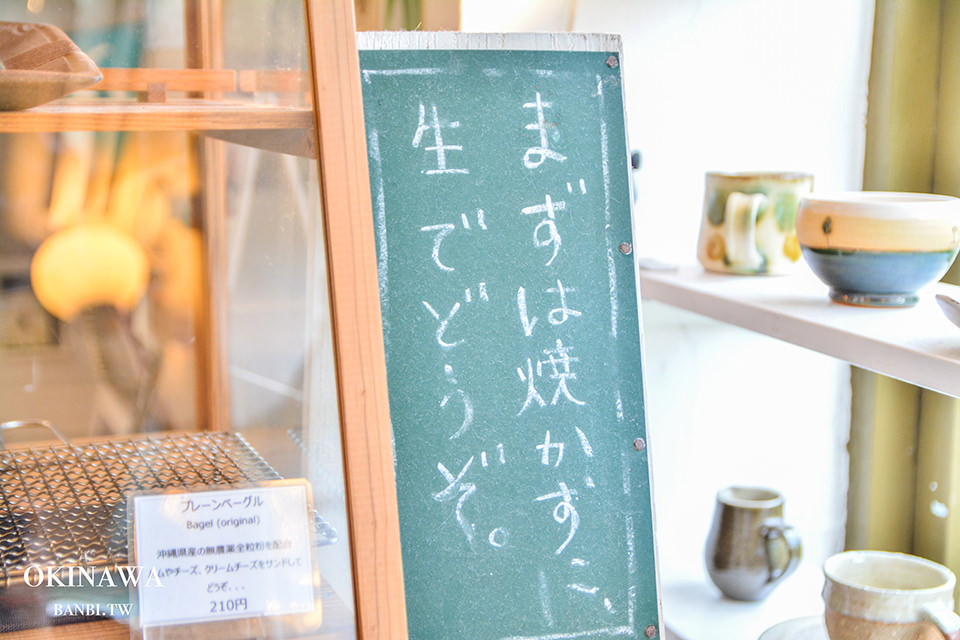 まずは焼かずに、
生でどうぞ。
プレーンベーグル
Bagel (original)
沖縄県産の無農薬全粒粉を配合
ムやチーズ、クリームチーズをサンドして
どうぞ...
210円
OKINAWA
BANBI.TW